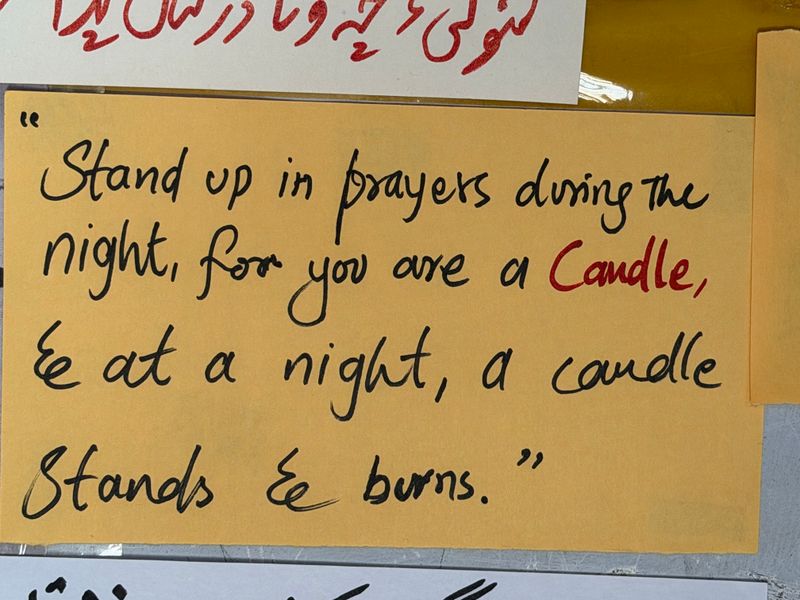 "Stand up in prayers during the
night, for you are a Candle,
& at a night, a candle
Stands & burns."